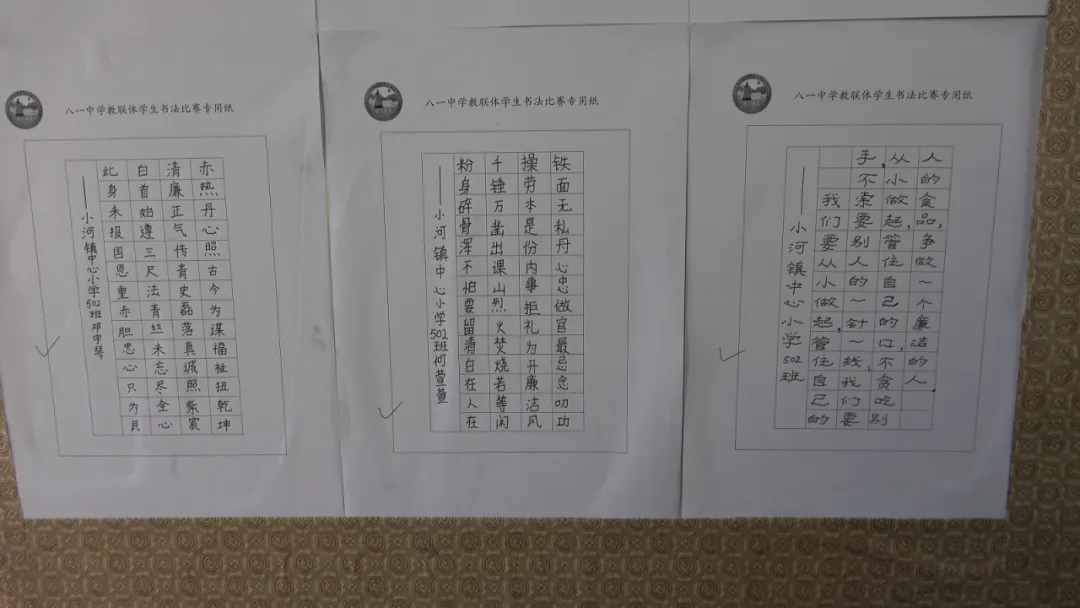 八一中学教联体学生书法比赛专用纸
赤热丹心照古今为谋福祉扭乾坤
清廉正气传青史磊落真诚照紫宸
白首始遵三尺法青丝未忘尽全心
此身未报国恩重赤胆忠心只为民
——小河镇中心小学502班邓宇琴
八一中学教联体学生书法比赛专用纸
铁面无私丹心忠做官最忌念叨功
操劳本是份内事拒礼为开廉洁风
千锤万凿出课山烈火焚烧若等闲
粉身碎骨浑不怕要留清白在人在
——小河镇中心小学502班何萱萱
八一中学教联体学生书法比赛专用纸
——小河镇中心小学502班
我们要从小做起,管住自己的
手,不索要别人的一针一线,我们要
从小做起,管住自己的口,不贪吃别
人的食品,争做一个廉洁的人.